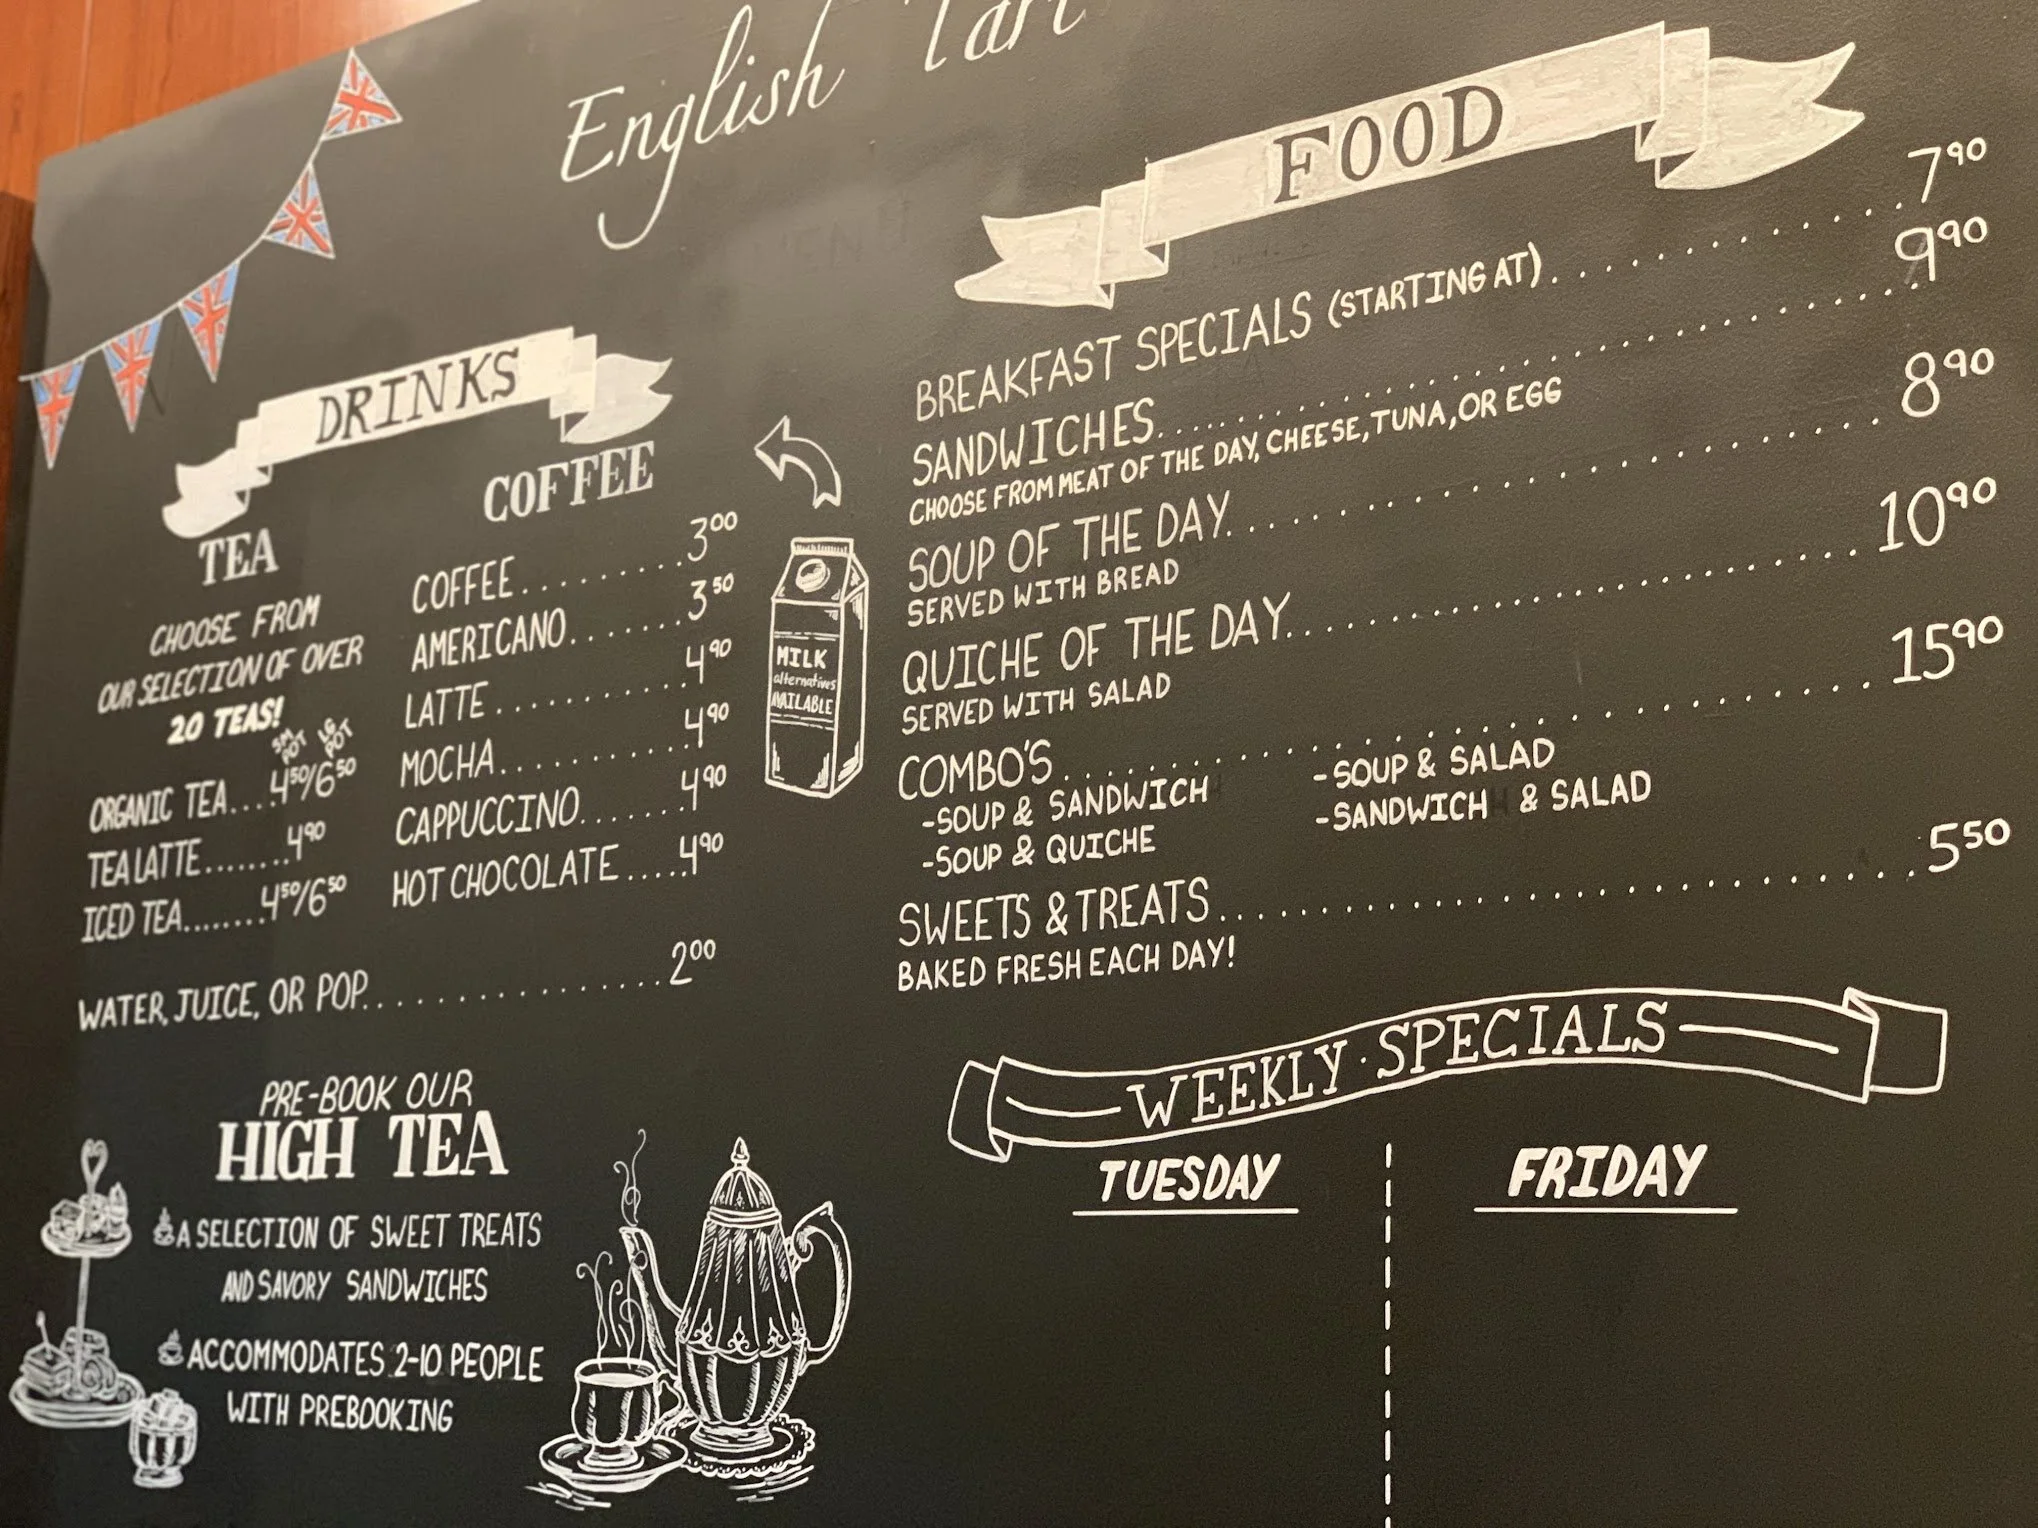 English Tart
DRINKS
TEA
CHOOSE FROM
OUR SELECTION OF OVER
20 TEAS!
SM POT LG POT
ORGANIC TEA....4⁵⁰/6⁵⁰
TEA LATTE........4⁹⁰
ICED TEA.......4⁵⁰/6⁵⁰
COFFEE
COFFEE.........3⁰⁰
AMERICANO.......3⁵⁰
LATTE...........4⁹⁰
MOCHA...........4⁹⁰
CAPPUCCINO.......4⁹⁰
HOT CHOCOLATE.....4⁹⁰
MILK
alternatives
AVAILABLE
WATER, JUICE, OR POP................2⁰⁰
PRE-BOOK OUR
HIGH TEA
A SELECTION OF SWEET TREATS
AND SAVORY SANDWICHES
ACCOMMODATES 2-10 PEOPLE
WITH PREBOOKING
FOOD
BREAKFAST SPECIALS (STARTING AT)...............7⁹⁰
SANDWICHES..............................9⁹⁰
CHOOSE FROM MEAT OF THE DAY, CHEESE, TUNA, OR EGG
SOUP OF THE DAY..........................8⁹⁰
SERVED WITH BREAD
QUICHE OF THE DAY........................10⁹⁰
SERVED WITH SALAD
COMBO'S..............................15⁹⁰
-SOUP & SANDWICH -SOUP & SALAD
-SOUP & QUICHE -SANDWICH & SALAD
SWEETS & TREATS..........................5⁵⁰
BAKED FRESH EACH DAY!
WEEKLY·SPECIALS
TUESDAY FRIDAY